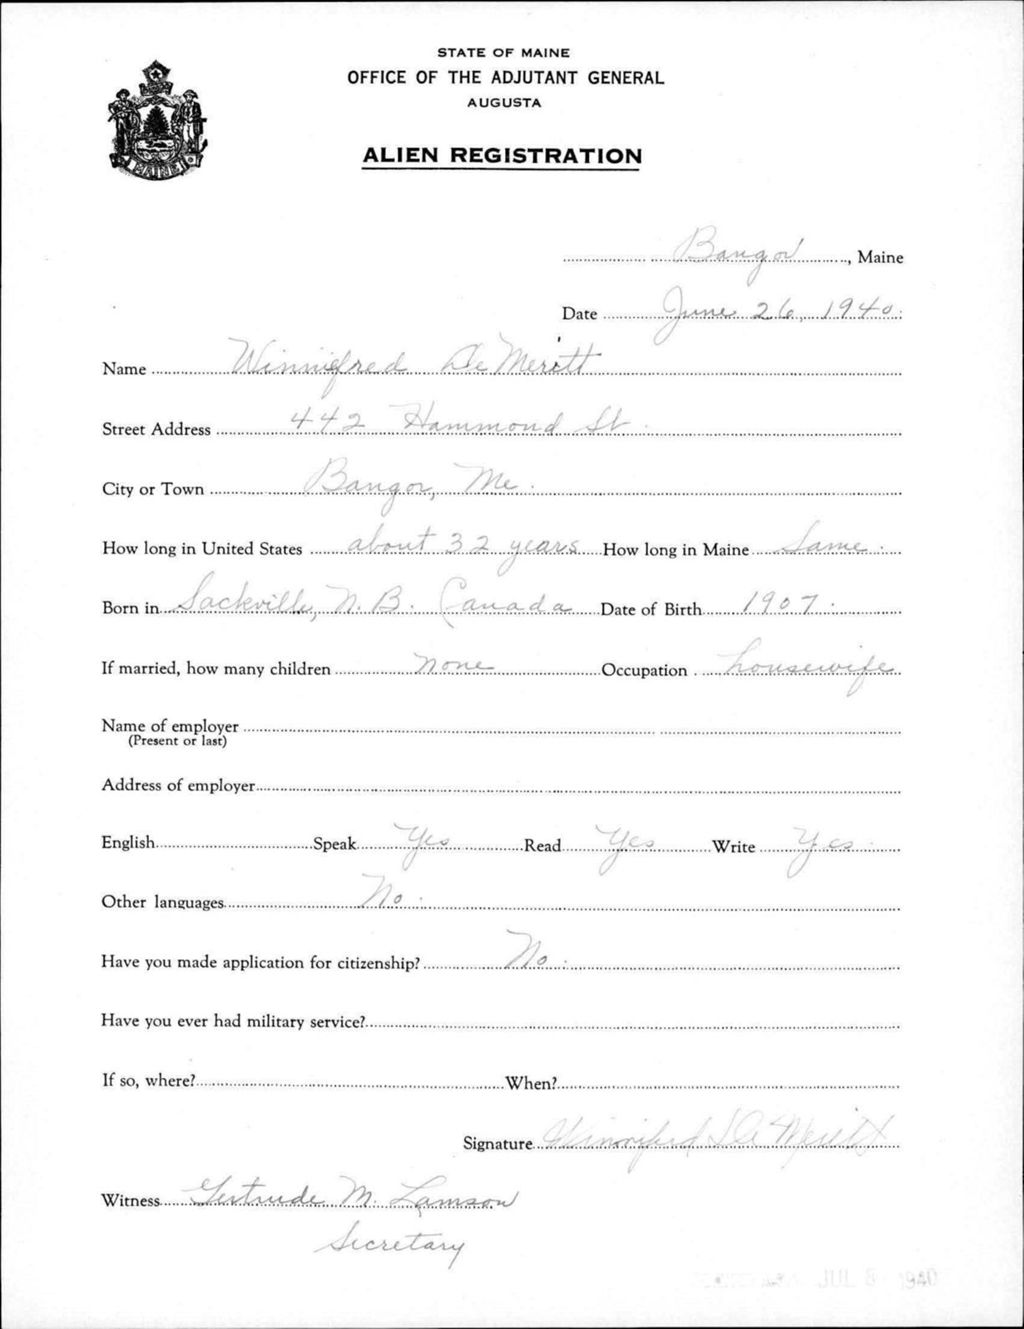 STATE OF MAINE
OFFICE OF THE ADJUTANT GENERAL
AUGUSTA
ALIEN REGISTRATION
MAINE
Bangor, Maine
Date June 26, 1940.
Name Winnifred De Meritt
Street Address 442 Hammond St.
City or Town Bangor, Me.
How long in United States about 32 years How long in Maine Same.
Born in Sackville, N. B. Canada Date of Birth 1907.
If married, how many children none Occupation housewife
Name of employer
(Present or last)
Address of employer
English Speak Yes Read Yes Write Yes.
Other languages No.
Have you made application for citizenship? No.
Have you ever had military service?
If so, where? When?
Signature Winnifred De Meritt
Witness Gertrude M. Lamson
Secretary
JUL 1940